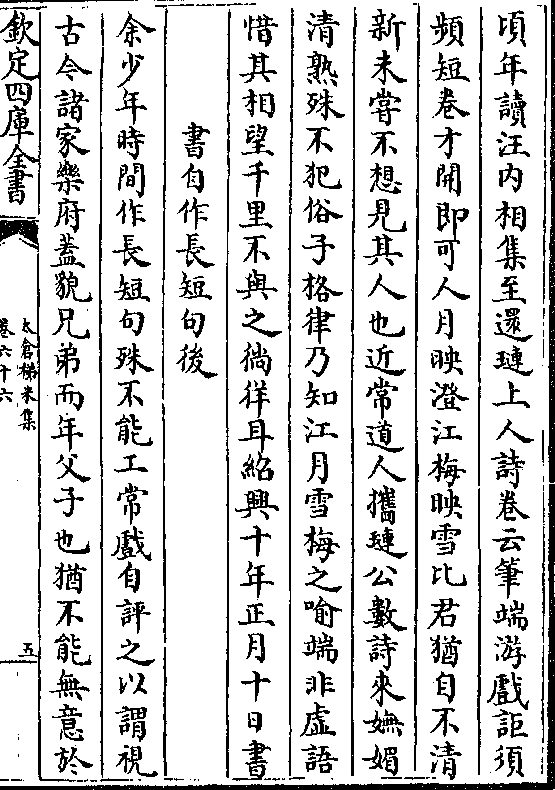 頃年讀汪内相集至還璉上人詩卷云筆端游戲詎須
頻短卷才開即可人月映澄江梅映雪比君猶自不清
新未嘗不想見其人也近常道人攜璉公數詩來嫵媚
清熟殊不犯俗子格律乃知江月雪梅之喻端非虛語
惜其相望千里不與之徜徉耳紹興十年正月十日書
書自作長短句後
余少年時間作長短句殊不能工常戲自評之以謂視
古今諸家樂府葢貌兄弟而年父子也猶不能無意於
欽定四庫全書
太倉稊米集
卷六十六
五